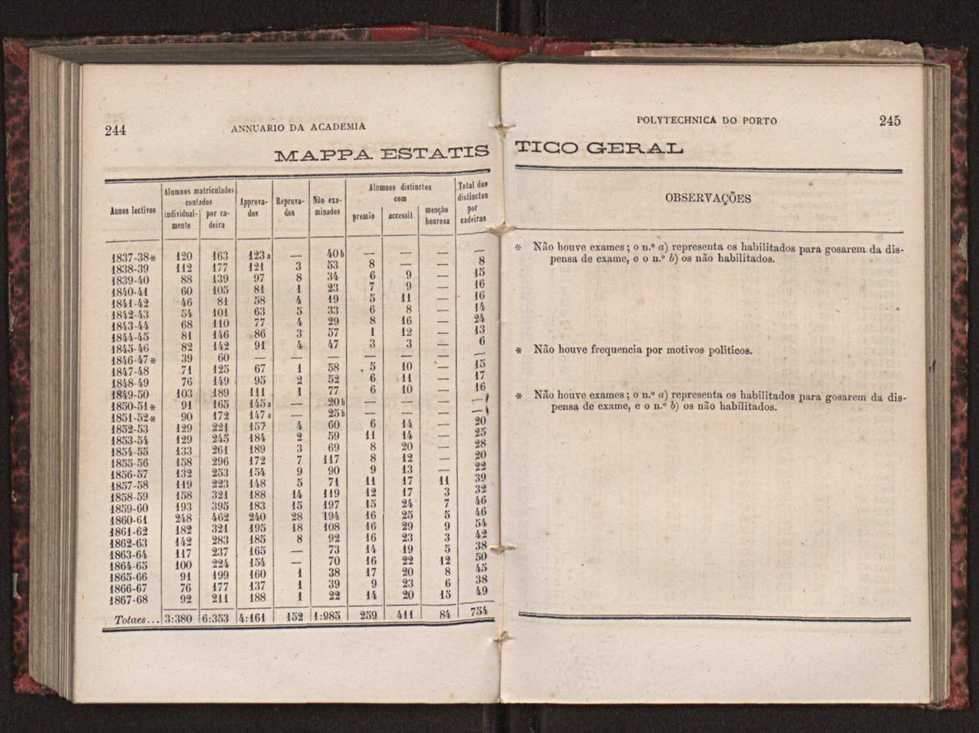 244
ANNUARIO DA ACADEMIA
MAPPA ESTATIS
Annos lectivos | Alumnos matriculados contados individualmente | por cadeira | Approvados | Reprovados | Não examinados | Alumnos distinctos com premio | accessit | menção honrosa | Total dos distinctos por cadeiras
1837-38* 120 163 123a — 40b — — — —
1838-39 112 177 121 3 53 8 — — 8
1839-40 88 139 97 8 34 6 9 — 15
1840-41 60 105 81 1 23 7 9 — 16
1841-42 46 81 58 4 19 5 11 — 16
1842-43 54 101 63 5 33 6 8 — 14
1843-44 68 110 77 4 29 8 16 — 24
1844-45 81 146 86 3 57 1 12 — 13
1845-46 82 142 91 4 47 3 3 — 6
1846-47* 39 60 — — — — — — —
1847-48 71 125 67 1 58 5 10 — 15
1848-49 76 149 95 2 52 6 11 — 17
1849-50 103 189 111 1 77 6 10 — 16
1850-51* 91 165 145a — 20b — — — —
1851-52* 90 172 147a — 25b — — — —
1852-53 129 221 157 4 60 6 14 — 20
1853-54 129 245 184 2 59 11 14 — 25
1854-55 133 261 189 3 69 8 20 — 28
1855-56 158 296 172 7 117 8 12 — 20
1856-57 132 253 154 9 90 9 13 — 22
1857-58 119 223 148 5 71 11 17 11 39
1858-59 158 321 188 14 119 12 17 3 32
1859-60 193 395 183 15 197 15 24 7 46
1860-61 248 462 240 28 194 16 25 5 46
1861-62 182 321 195 18 108 16 29 9 54
1862-63 142 283 185 8 92 16 23 3 42
1863-64 117 237 165 — 73 14 19 5 38
1864-65 100 224 154 — 70 16 22 12 50
1865-66 91 199 160 1 38 17 20 8 45
1866-67 76 177 137 1 39 9 23 6 38
1867-68 92 211 188 1 22 14 20 15 49
Totaes... 3:380 6:353 4:161 152 1:985 259 411 84 754
POLYTECHNICA DO PORTO
245
TICO GERAL
OBSERVAÇÕES
* Não houve exames; o n.º a) representa os habilitados para gosarem da dis-
pensa de exame, e o n.º b) os não habilitados.
* Não houve frequencia por motivos politicos.
* Não houve exames; o n.º a) representa os habilitados para gosarem da dis-
pensa de exame, e o n.º b) os não habilitados.